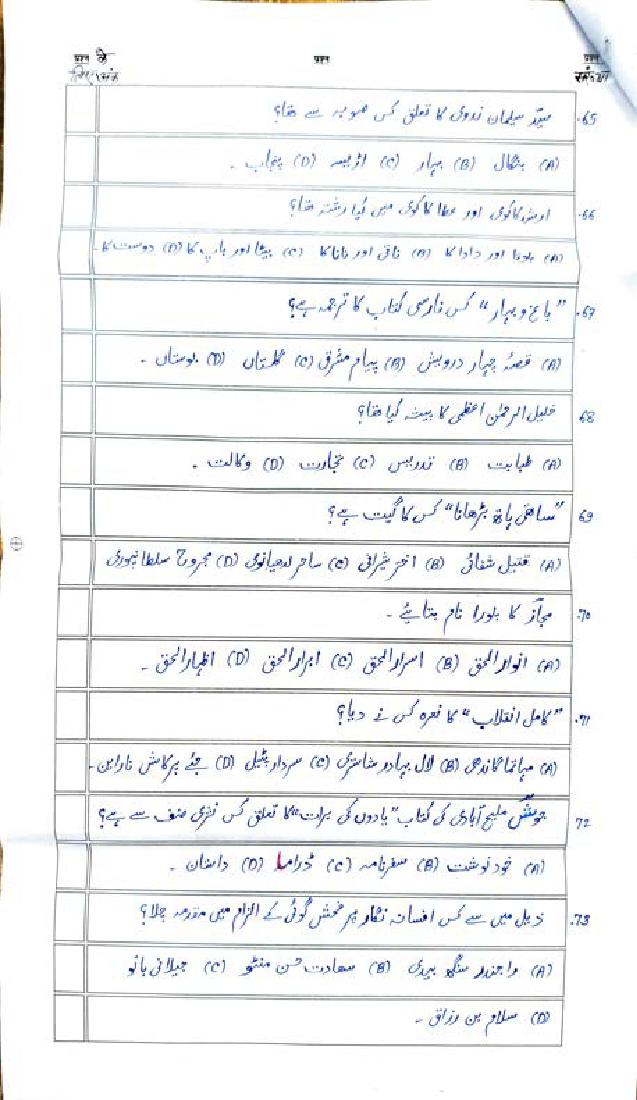 प्रश्न के प्रश्न प्रश्न
65. سید سلیمان ندوی کا تعلق کس صوبہ سے تھا؟
(A) بنگال (B) بہار (C) اڑیسہ (D) پنجاب ۔
66. ارشد کاکوی اور عطا کاکوی میں کیا رشتہ تھا؟
(A) پوتا اور دادا کا (B) ناتی اور نانا کا (C) بیٹا اور باپ کا (D) دوست کا ۔
67. "باغ و بہار" کس فارسی کتاب کا ترجمہ ہے؟
(A) قصۂ چہار درویش (B) پیام مشرق (C) گلستاں (D) بوستاں ۔
68 خلیل الرحمٰن اعظمی کا پیشہ کیا تھا؟
(A) طبابت (B) تدریس (C) تجارت (D) وکالت ۔
69 "ساتھی ہاتھ بڑھانا" کس کا گیت ہے؟
(A) قتیل شفائی (B) اختر شیرانی (C) ساحر لدھیانوی (D) مجروح سلطانپوری
70. مجاز کا پورا نام بتائیے ۔
(A) انوارالحق (B) اسرارالحق (C) ابرارالحق (D) اظہارالحق ۔
71. "کامل انقلاب" کا نعرہ کس نے دیا؟
(A) مہاتما گاندھی (B) لال بہادر شاستری (C) سردار پٹیل (D) جئے پرکاش نارائن ۔
72 جوش ملیح آبادی کی کتاب "یادوں کی برات" کا تعلق کس نثری صنف سے ہے؟
(A) خودنوشت (B) سفرنامہ (C) ڈراما (D) داستان ۔
73. ذیل میں سے کس افسانہ نگار پر فحش گوئی کے الزام میں مقدمہ چلا؟
(A) راجندر سنگھ بیدی (B) سعادت حسن منٹو (C) جیلانی بانو
(D) سلام بن رزاق ۔